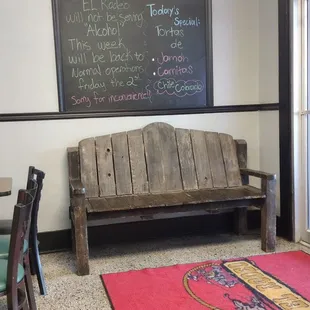 El Rodeo
will not be serving
"Alcohol"
This week
will be back to
Normal operations
Friday the 2nd
Sorry for inconvenience!
Today's
Special:
Tortas
de
• Jamon
• Carnitas
• Chile Colorado